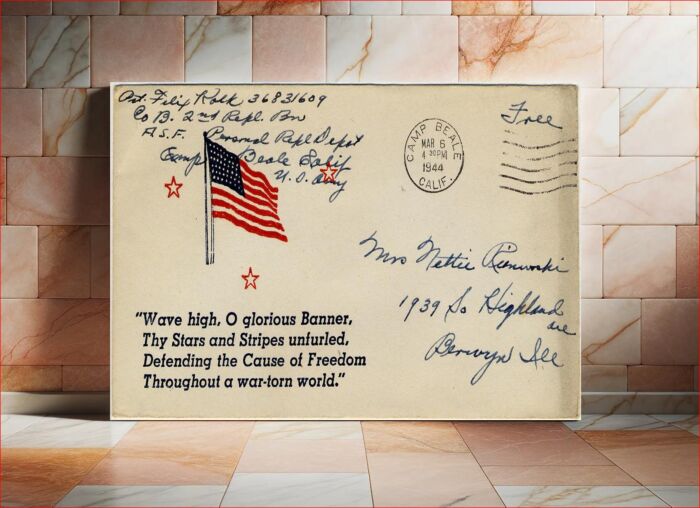 Pvt. Felix Kolk 36831609
Co B. 2nd Repl. Bn
A.S.F. Personal Repl Depot
Camp Beale Calif
U.S. Army
Free
CAMP BEALE
MAR 6
4 30PM
1944
CALIF.
Mrs Nettie
1939 So Highland
ave
Berwyn Ill
"Wave high, O glorious Banner,
Thy Stars and Stripes unfurled,
Defending the Cause of Freedom
Throughout a war-torn world."